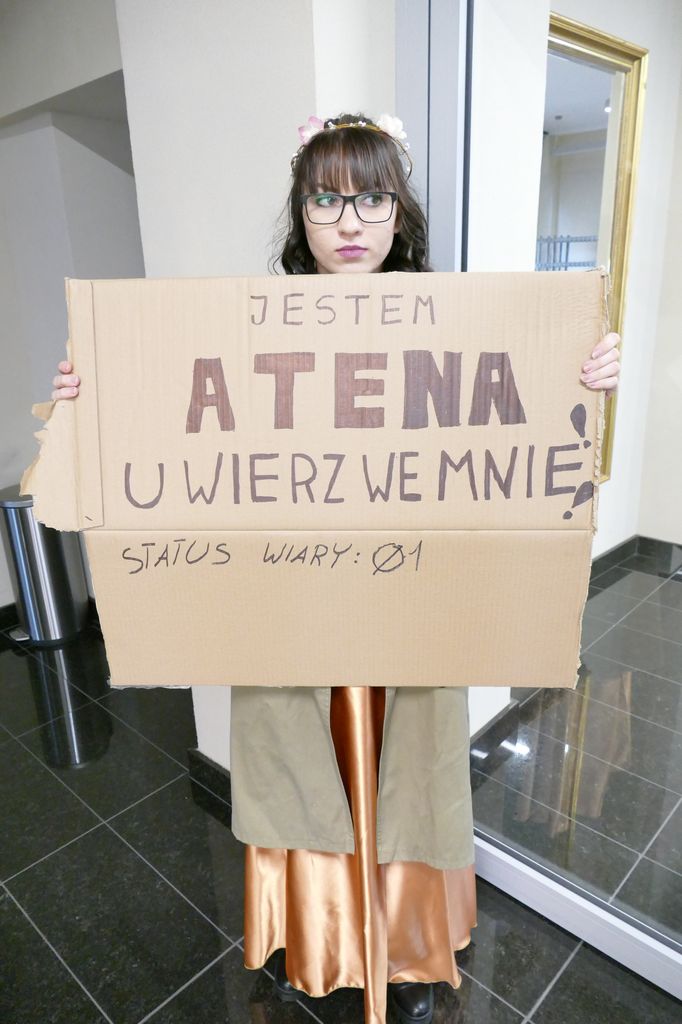 JESTEM
ATENA
UWIERZ WE MNIE!!
STATUS WIARY: Ø1